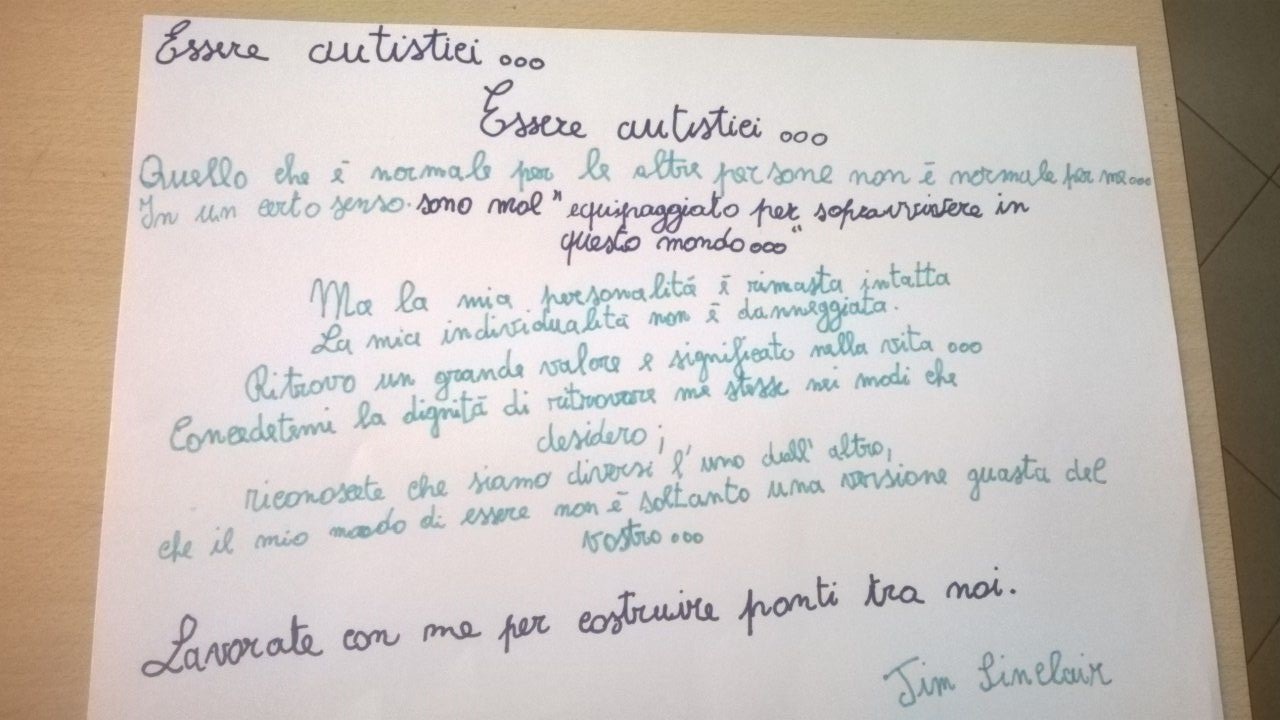 Essere autistici...
Essere autistici...
Quello che è normale per le altre persone non è normale per me...
In un certo senso. sono mal "equipaggiato per sopravvivere in
questo mondo..."
Ma la mia personalità è rimasta intatta
La mia individualità non è danneggiata.
Ritrovo un grande valore e significato nella vita...
Concedetemi la dignità di ritrovare me stesse nei modi che
desidero;
riconoscete che siamo diversi l'uno dall'altro,
che il mio modo di essere non è soltanto una versione guasta del
vostro...
Lavorate con me per costruire ponti tra noi.
Jim Sinclair